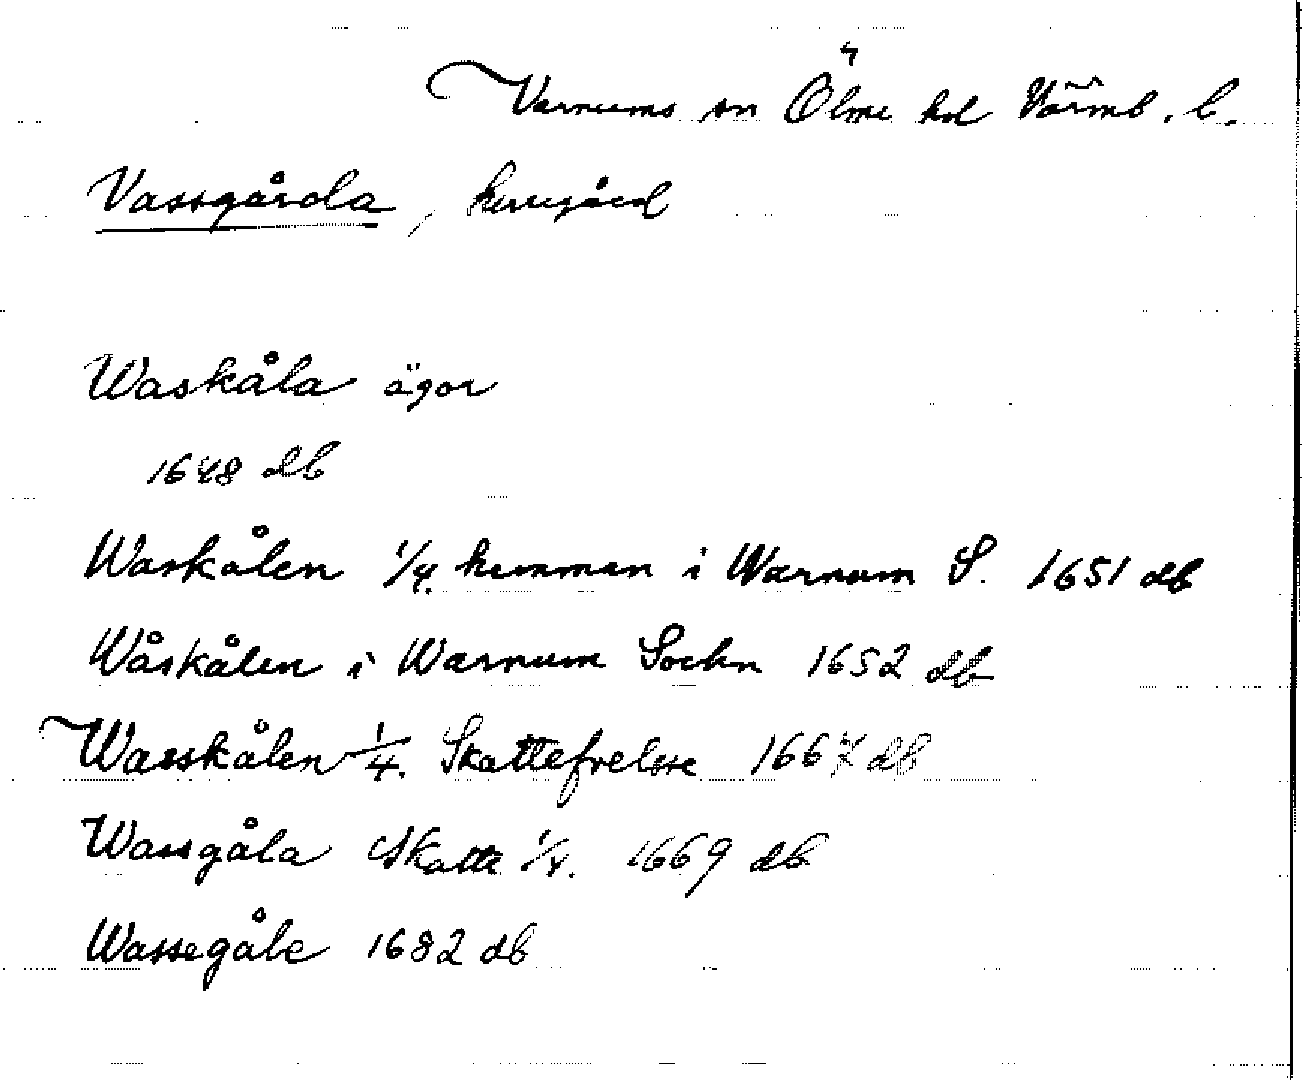 4
Varnums sn Ölme hd Värml. l.
Vassgårda, herrgård
Waskåla ägor
1648 db
Waskålen 1/4 hemman i Warnum S. 1651 db
Wåskålen i Warnum Sochn 1652 db
Wasskålen 1/4. Skattefrelsse 1667 db
Wassgåla Skatte 1/4. 1669 db
Wassegåle 1682 db